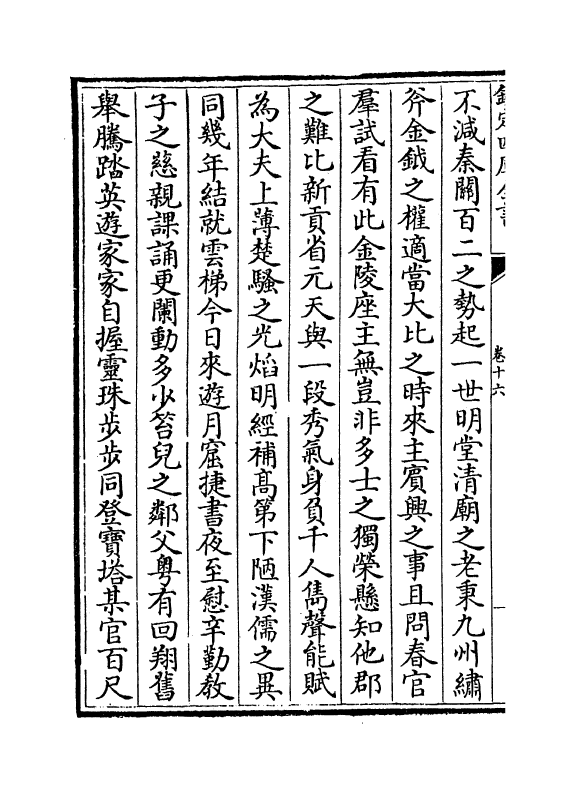 欽定四庫全書
卷十六
不減秦關百二之勢起一世明堂清廟之老秉九州繡
斧金鉞之權適當大比之時來主賓興之事且問春官
羣試看有此金陵座主無豈非多士之獨榮懸知他郡
之難比新貢省元天與一段秀氣身負千人雋聲能賦
為大夫上薄楚騷之光焰明經補髙第下陋漢儒之異
同幾年結就雲梯今日來遊月窟捷書夜至慰辛勤教
子之慈親課誦更闌動多少笞兒之鄰父粵有回翔舊
舉騰踏英遊家家自握靈珠步步同登寶塔某官百尺